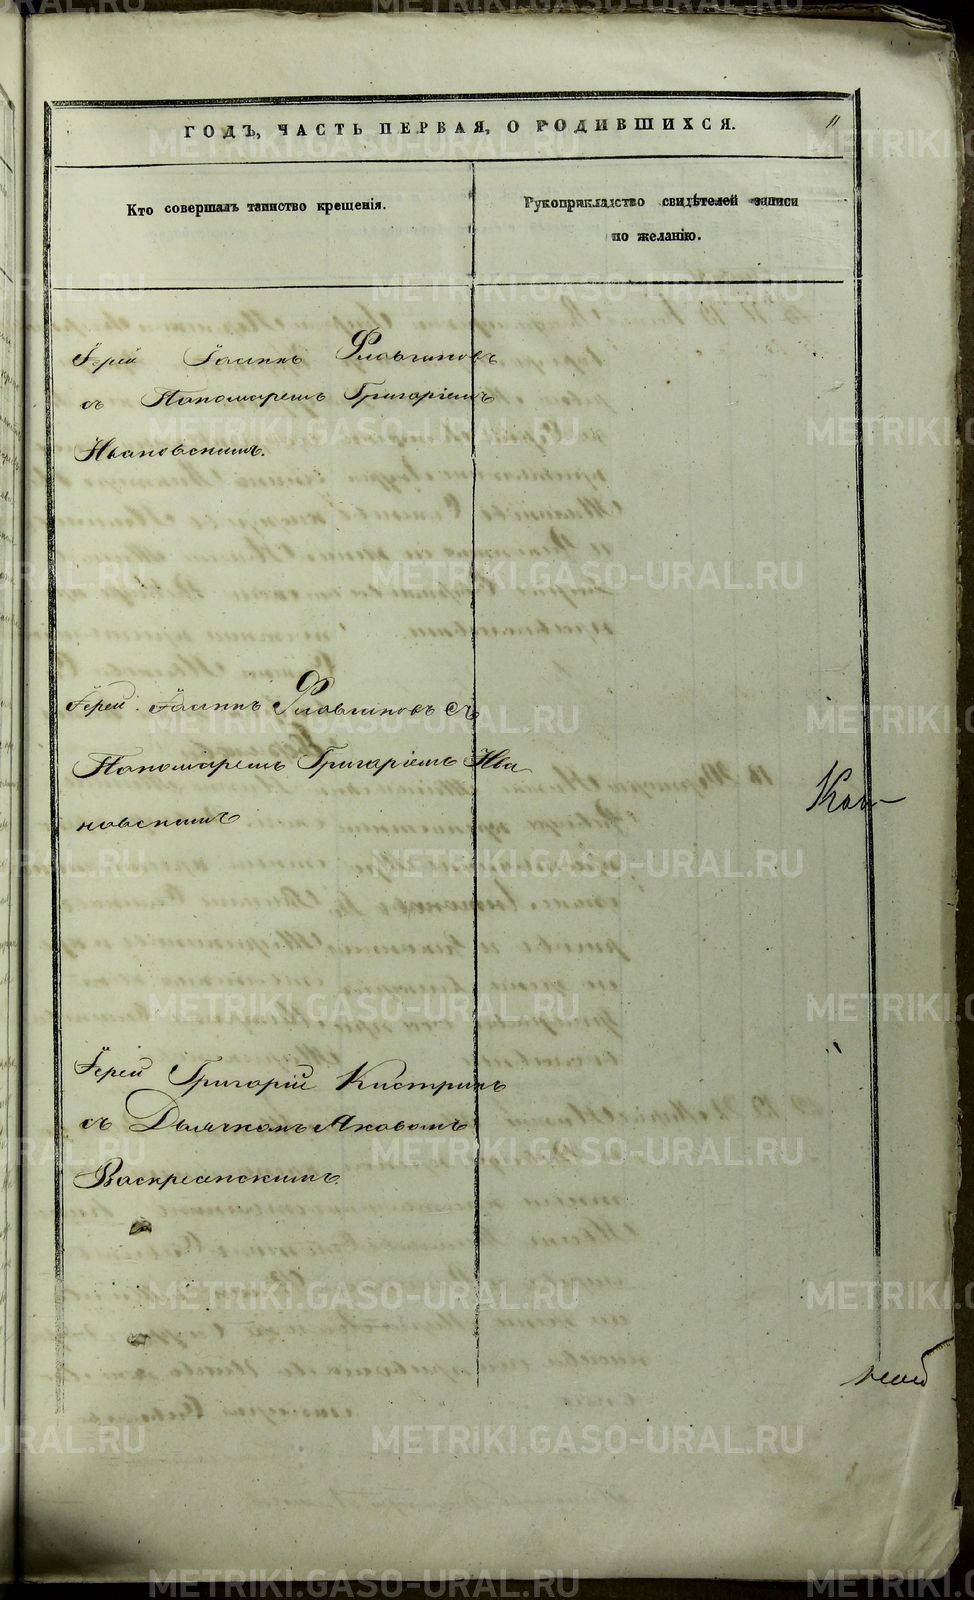 ГОДЪ, ЧАСТЬ ПЕРВАЯ, О РОДИВШИХСЯ.
11
Кто совершалъ таинство крещенія.
Рукоприкладство свидѣтелей записи
по желанію.
Іерей Іоаннъ Флавіановъ
съ Пономаремъ Григоріемъ
Ивановскимъ.
Іерей Іоаннъ Флавіановъ съ
Пономаремъ Григоріемъ Ива
новскимъ
Іерей Григорій Кистринъ
съ Дьячкомъ Яковомъ
Воскресенскимъ.
METRIKI.GASO-URAL.RU